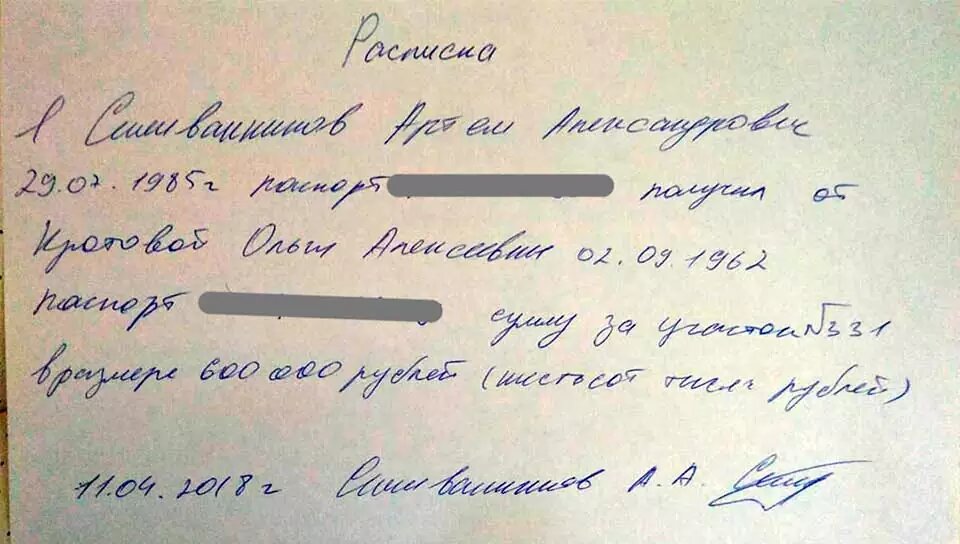 Расписка
Я Силиванчиков Артем Александрович
29.07.1985г паспорт получил от
Кротовой Ольги Алексеевны 02.09.1962
паспорт сумму за участок №331
в размере 600 000 рублей (шестьсот тысяч рублей)
11.04.2018г Силиванчиков А.А.